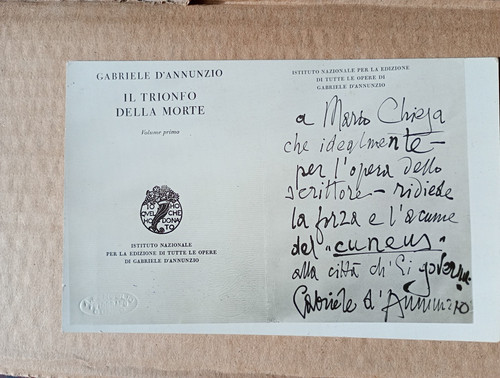 GABRIELE D'ANNUNZIO
IL TRIONFO
DELLA MORTE
Volume prima
IO HO
QUEL CHE
HO DONA
TO
ISTITUTO NAZIONALE
PER LA EDIZIONE DI TUTTE LE OPERE
DI GABRIELE D'ANNUNZIO
ISTITUTO NAZIONALE PER LA EDIZIONE
DI TUTTE LE OPERE DI
GABRIELE D'ANNUNZIO
a Mario Chiesa
che idealmente -
per l'opera dello
scrittore - ridiede
la forza e l'acume
del "cuneus"
alla città ch'Ei governa
Gabriele d'Annunzio